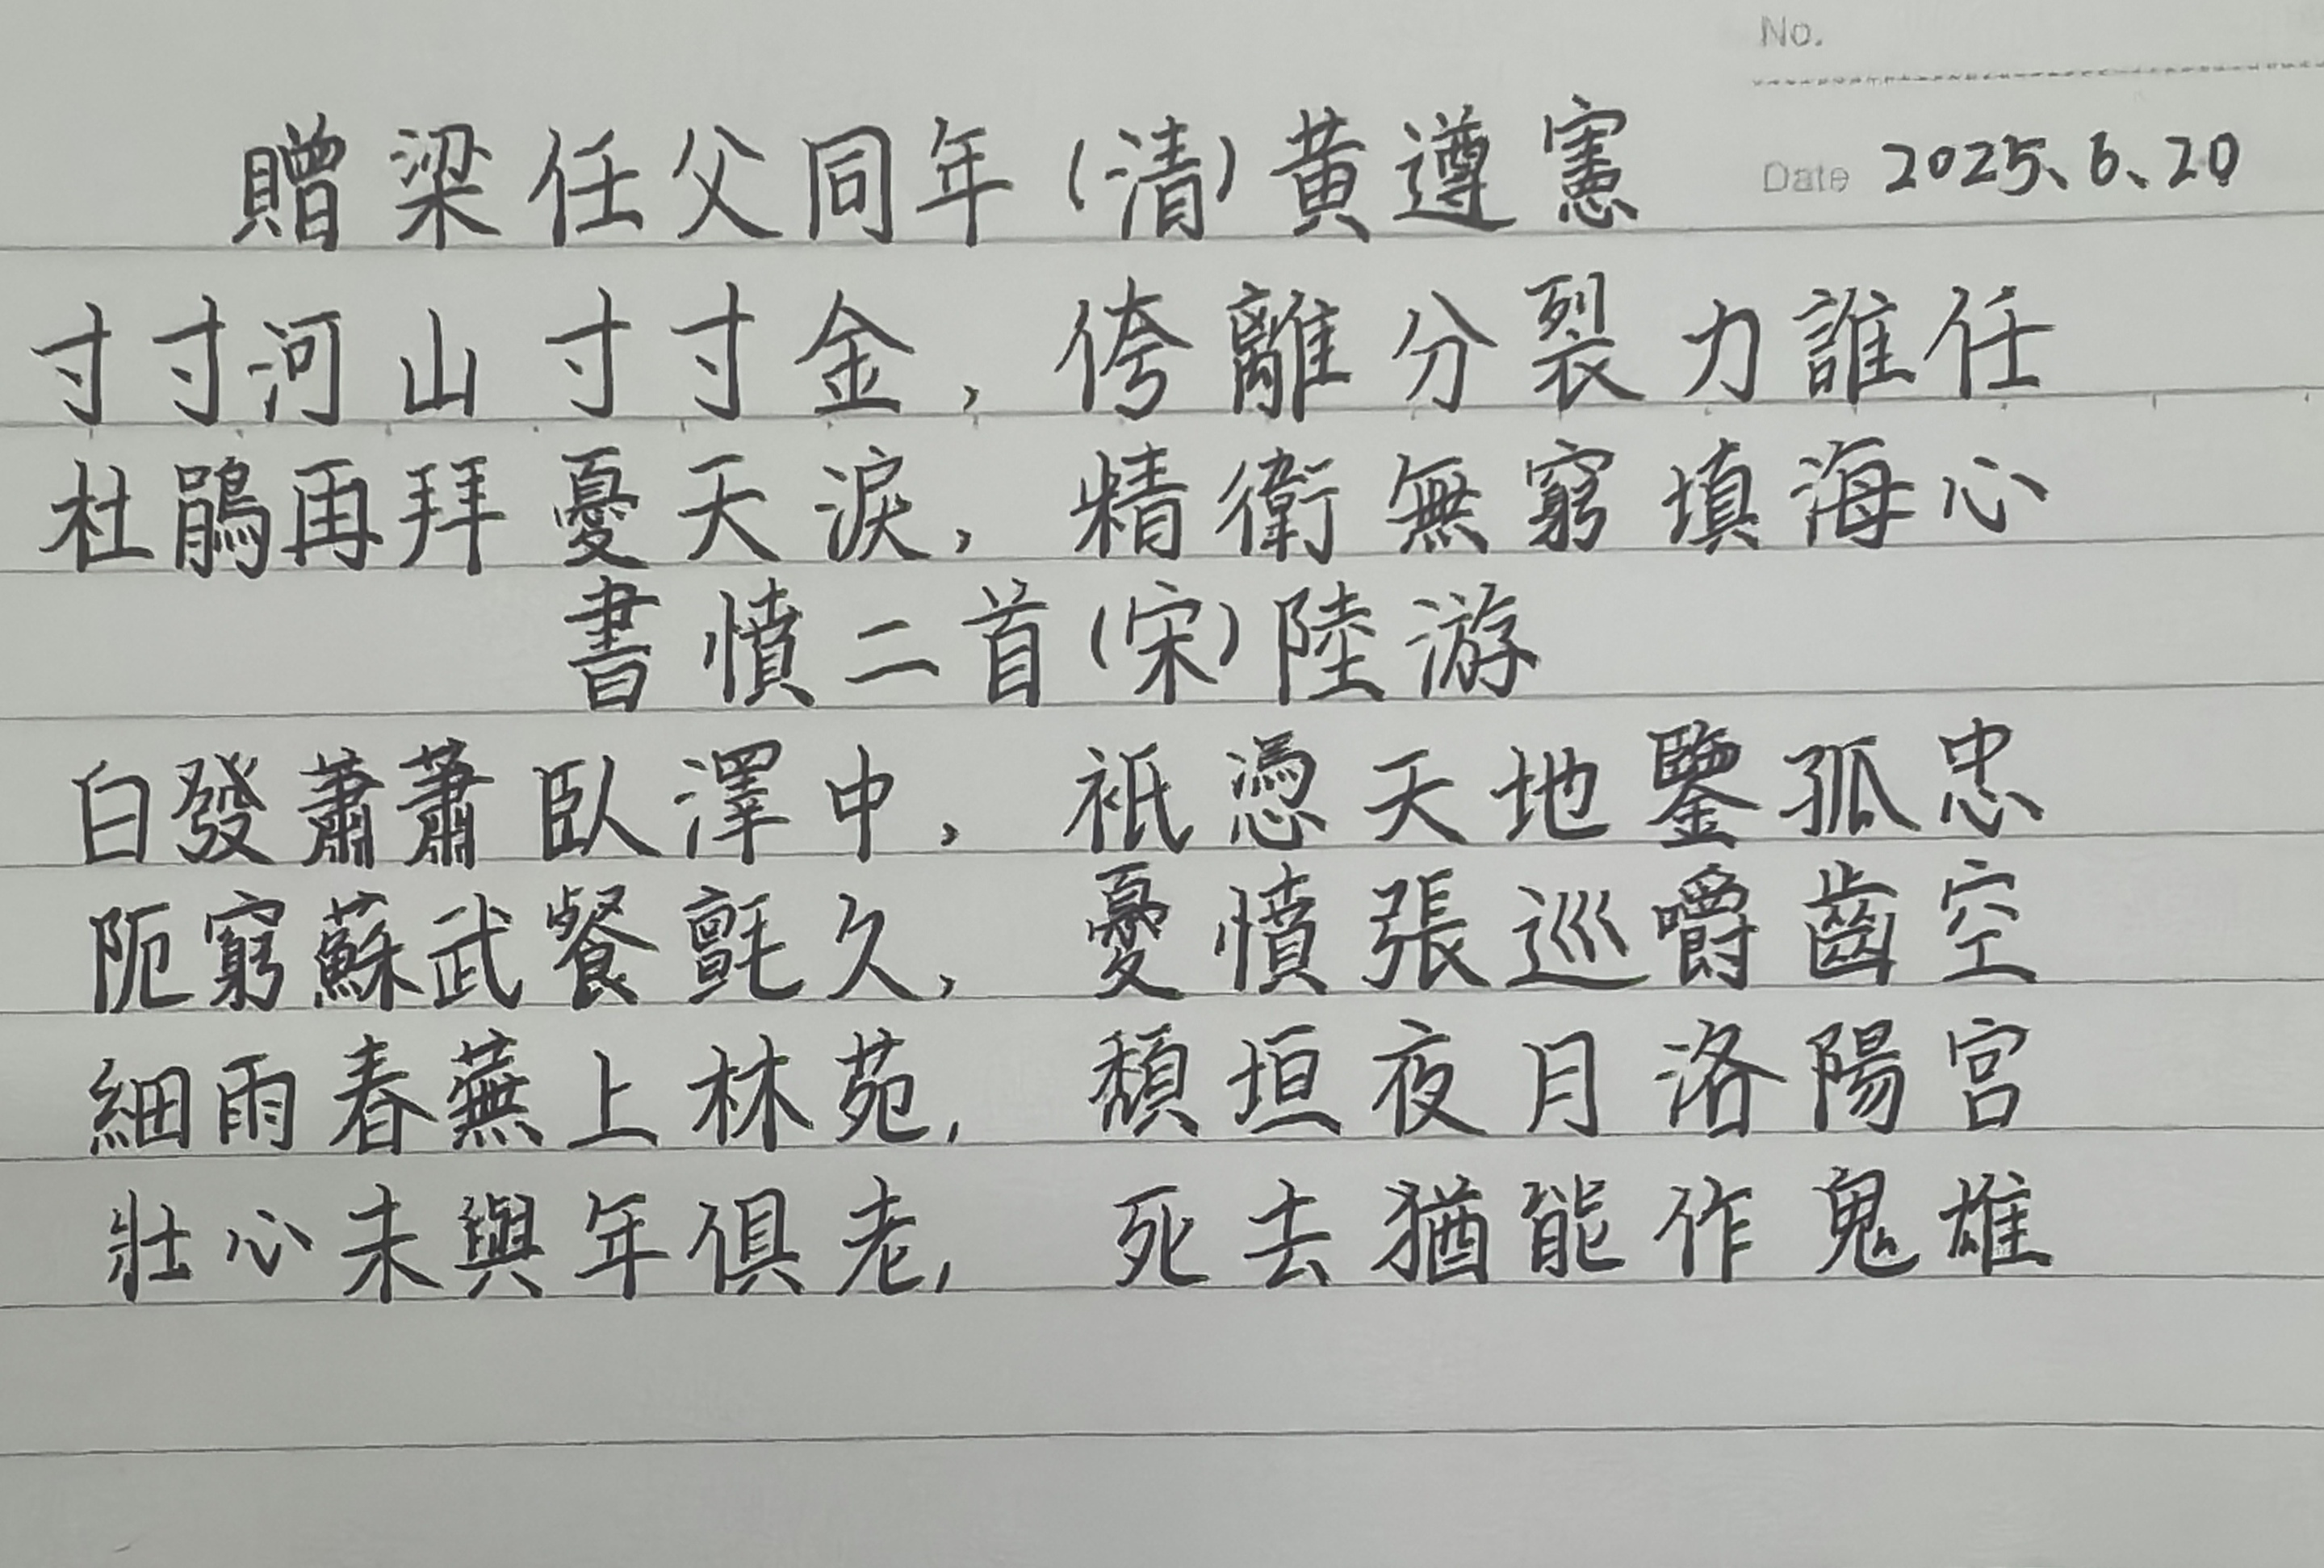 No.
Date 2025.6.20
贈梁任父同年(清)黃遵憲
寸寸河山寸寸金,侉離分裂力誰任
杜鵑再拜憂天淚,精衛無窮填海心
書憤二首(宋)陸游
白發蕭蕭臥澤中,祇憑天地鑒孤忠
阨窮蘇武餐氈久,憂憤張巡嚼齒空
細雨春蕪上林苑,頹垣夜月洛陽宮
壯心未與年俱老,死去猶能作鬼雄